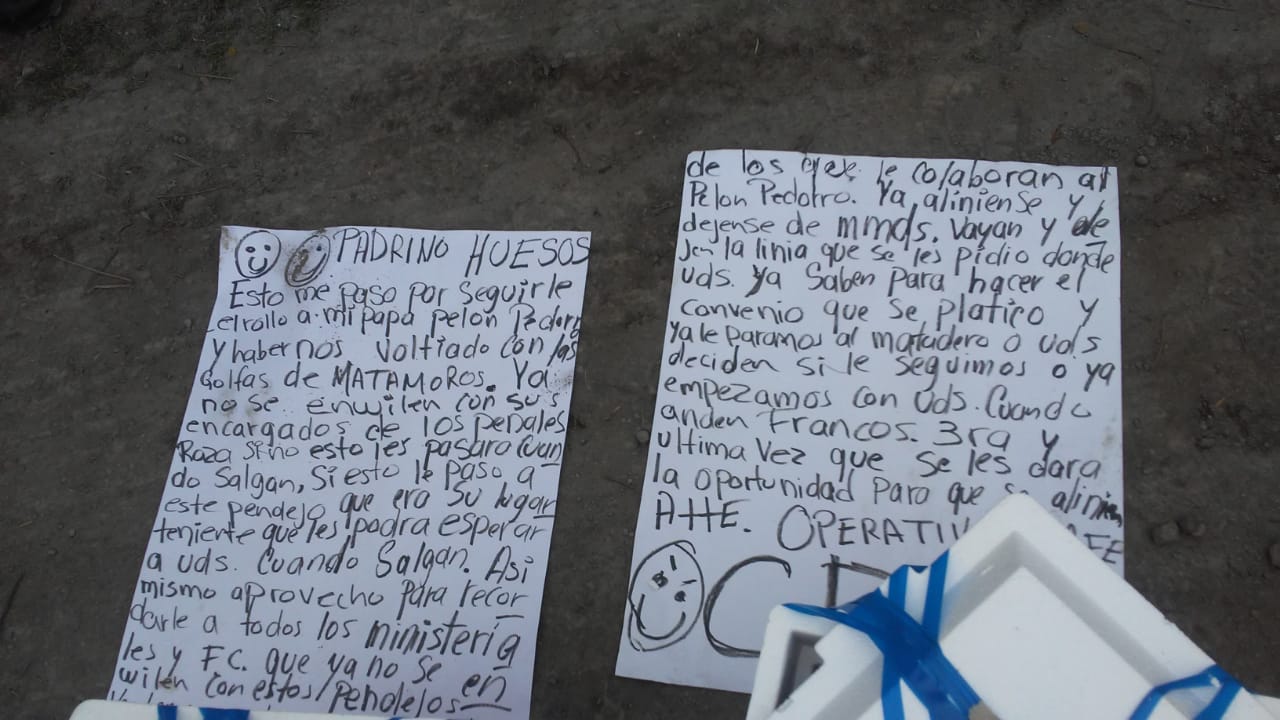 PADRINO HUESOS
Esto me paso por seguirle
el rollo a mi papa pelon Pedorro
y habernos voltiado con las
Golfas de MATAMOROS. Ya
no se enwilen con sus
encargados de los penales
Raza si no esto les pasara cuan
do Salgan, si esto le paso a
este pendejo que era su lugar
teniente que les podra esperar
a uds. Cuando Salgan. Asi
mismo aprovecho para recor
darle a todos los ministeria
les y F.C. que ya no se en
wilen con estos pendelos
de los que le colaboran al
Pelon Pedorro. Ya aliniense y
dejense de mmds. Vayan y de
jen la linia que se les pidio donde
uds. ya Saben para hacer el
convenio que se platico y
ya le paramos al matadero o uds
deciden si le seguimos o ya
empezamos con uds. Cuando
anden Francos. 3ra y
ultima Vez que se les dara
la oportunidad para que se alinien
ATTE. OPERATIV
C